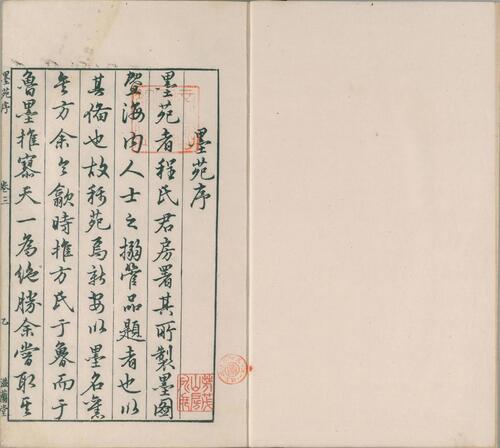 墨苑序
墨苑者程氏君房署其所製墨圖
暨海內人士之搦管品題者也以
其備也故稱苑焉新安以墨名舊
矣方余令歙時推方氏于魯而于
魯墨推寥天一為絕勝余嘗取其
墨苑序
卷三
乙
滋蘭堂